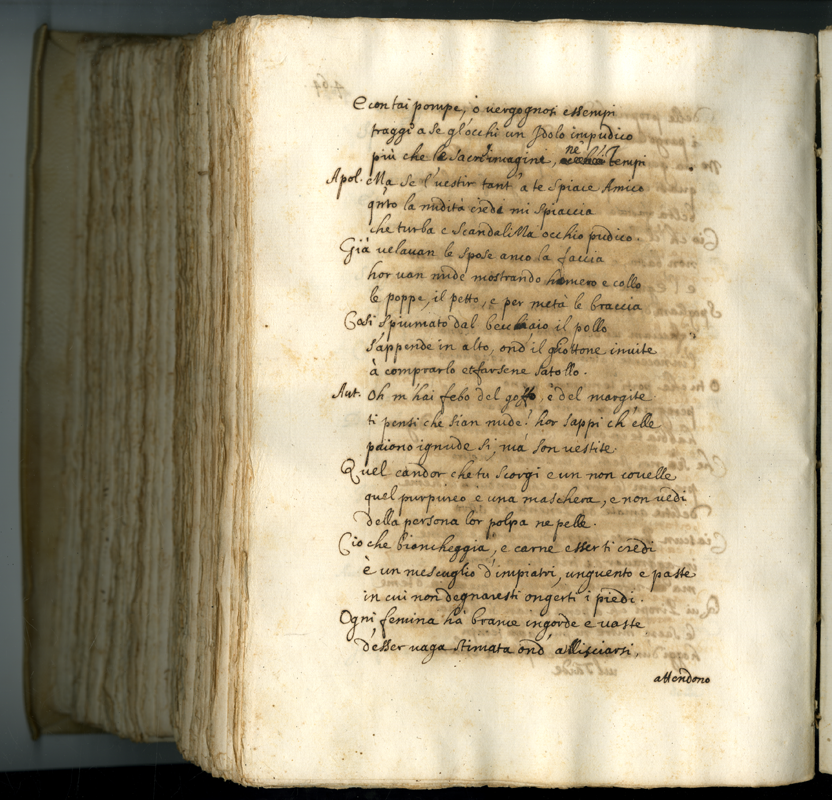 E con tai pompe, ò vergognosi essempi
traggi a se gl'occhi un Idolo impudico
più che le sacre imagini, ne i Tempi
Apol. Ma se l'vestir tant' a te spiace Amico
qnto la nudità credi mi spiaccia
che turba e scandaliZZa occhio pudico.
Già velauan le spose anco la faccia
hor uan nude mostrando homero e collo
le poppe, il petto, e per metà le braccia
Così spiumato dal beccaio il pollo
s'appende in alto, ond' il ghiottone inuite
à comprarlo et farsene satollo.
Aut. Oh m'hai febo del goffo, è del margite
ti pensi che sian nude! hor sappi ch'elle
paiono ignude si, mà son vestite
Quel candor che tu scorgi e un non couelle
quel purpureo è una maschera, e non uedi
della persona lor polpa ne pelle.
Ciò che biancheggia, e carne esser ti credi
è un mescuglio d'impiastri, unguento e paste
in cui non degnaresti ongerti i piedi.
Ogni femina hà brame ingorde e uaste
d'esser uaga stimata ond' a llisciarsi,
attendono